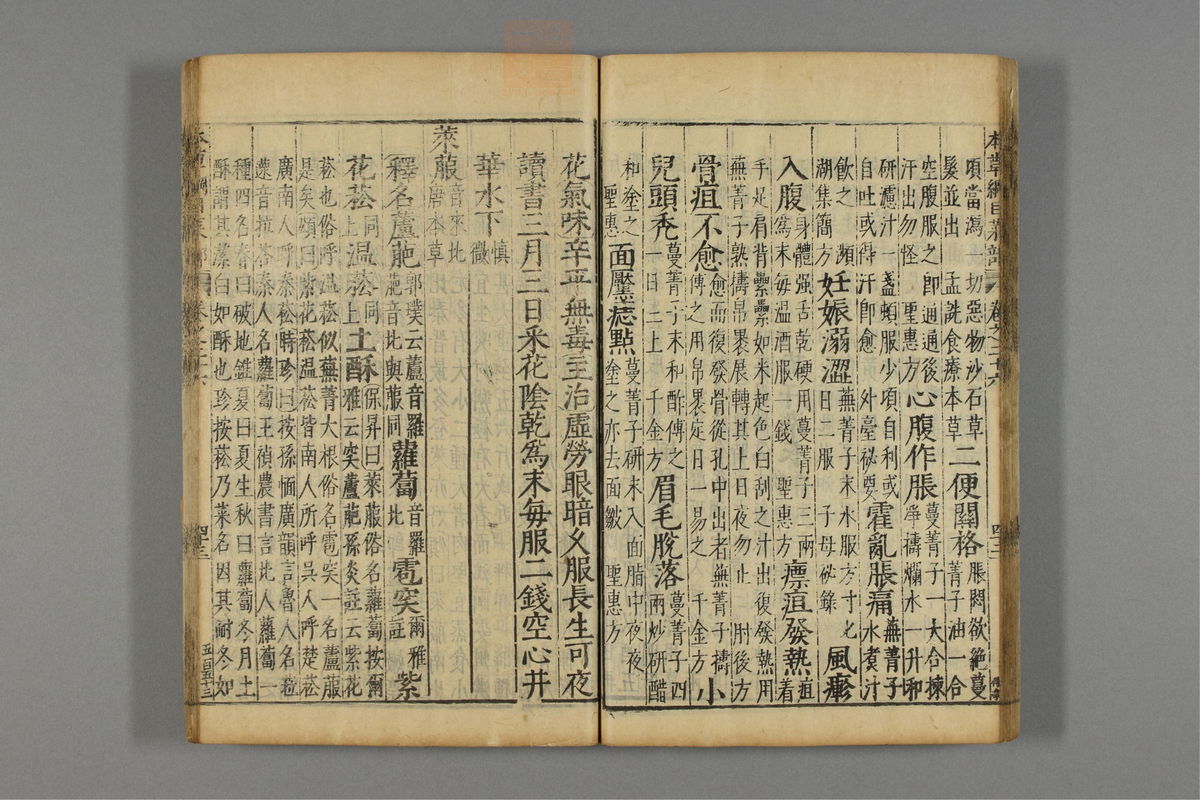 本草綱目菜部 卷之二十六 四十二
頃當瀉一切惡物沙石草髮並出 孟詵食療本草 二便關格 脹悶欲絕蔓菁子油一合
空腹服之即通通後汗出勿怪 聖惠方 心腹作脹 蔓菁子一大合揀淨擣爛水一升和
研濾汁一盞頓服少頃自利或自吐或得汗即愈 外臺祕要 霍亂脹痛 蕪菁子水煮汁
飲之 瀕湖集簡方 妊娠溺澀 蕪菁子末水服方寸匕日二服 子母祕錄 風疹
入腹 身體強舌乾硬用蔓菁子三兩爲末每温酒服一錢 聖惠方 瘭疽發熱 疽着
手足肩背纍纍如米起色白刮之汁出復發熱用蕪菁子熟擣帛裹展轉其上日夜勿止 肘後方
骨疽不愈 愈而復發骨從孔中出者蕪菁子擣傅之用帛裹定日一易之 千金方 小
兒頭禿 蔓菁子末和酢傅之一日三上 千金方 眉毛脫落 蔓菁子四兩炒研醋
和塗之 聖惠 面黶痣點 蔓菁子研末入面脂中夜夜塗之亦去面皺 聖惠方
花氣味辛平無毒主治虛勞眼暗久服長生可夜
讀書三月三日采花陰乾爲末每服二錢空心井
華水下 慎微
萊菔 音來北 唐本草
釋名蘆萉 郭璞云蘆音羅萉音北與菔同 蘿蔔 音羅北 雹突 爾雅註 紫
花菘 上同 温菘 上同 土酥 保昇曰萊菔俗名蘿蔔按爾雅云突蘆萉孫炎註云紫花
菘也俗呼温菘似蕪菁大根俗名雹突一名蘆菔是矣頌曰紫花菘温菘皆南人所呼吳人呼楚菘
廣南人呼秦菘時珍曰按孫愐廣韻言魯人名菈䔖音拉荅秦人名蘿蔔王禎農書言北人蘿蔔一
種四名春曰破地錐夏曰夏生秋曰蘿蔔冬曰土酥謂其潔白如酥也珍按菘乃菜名因其耐冬如
卷之二十六 四十三 五百五十三